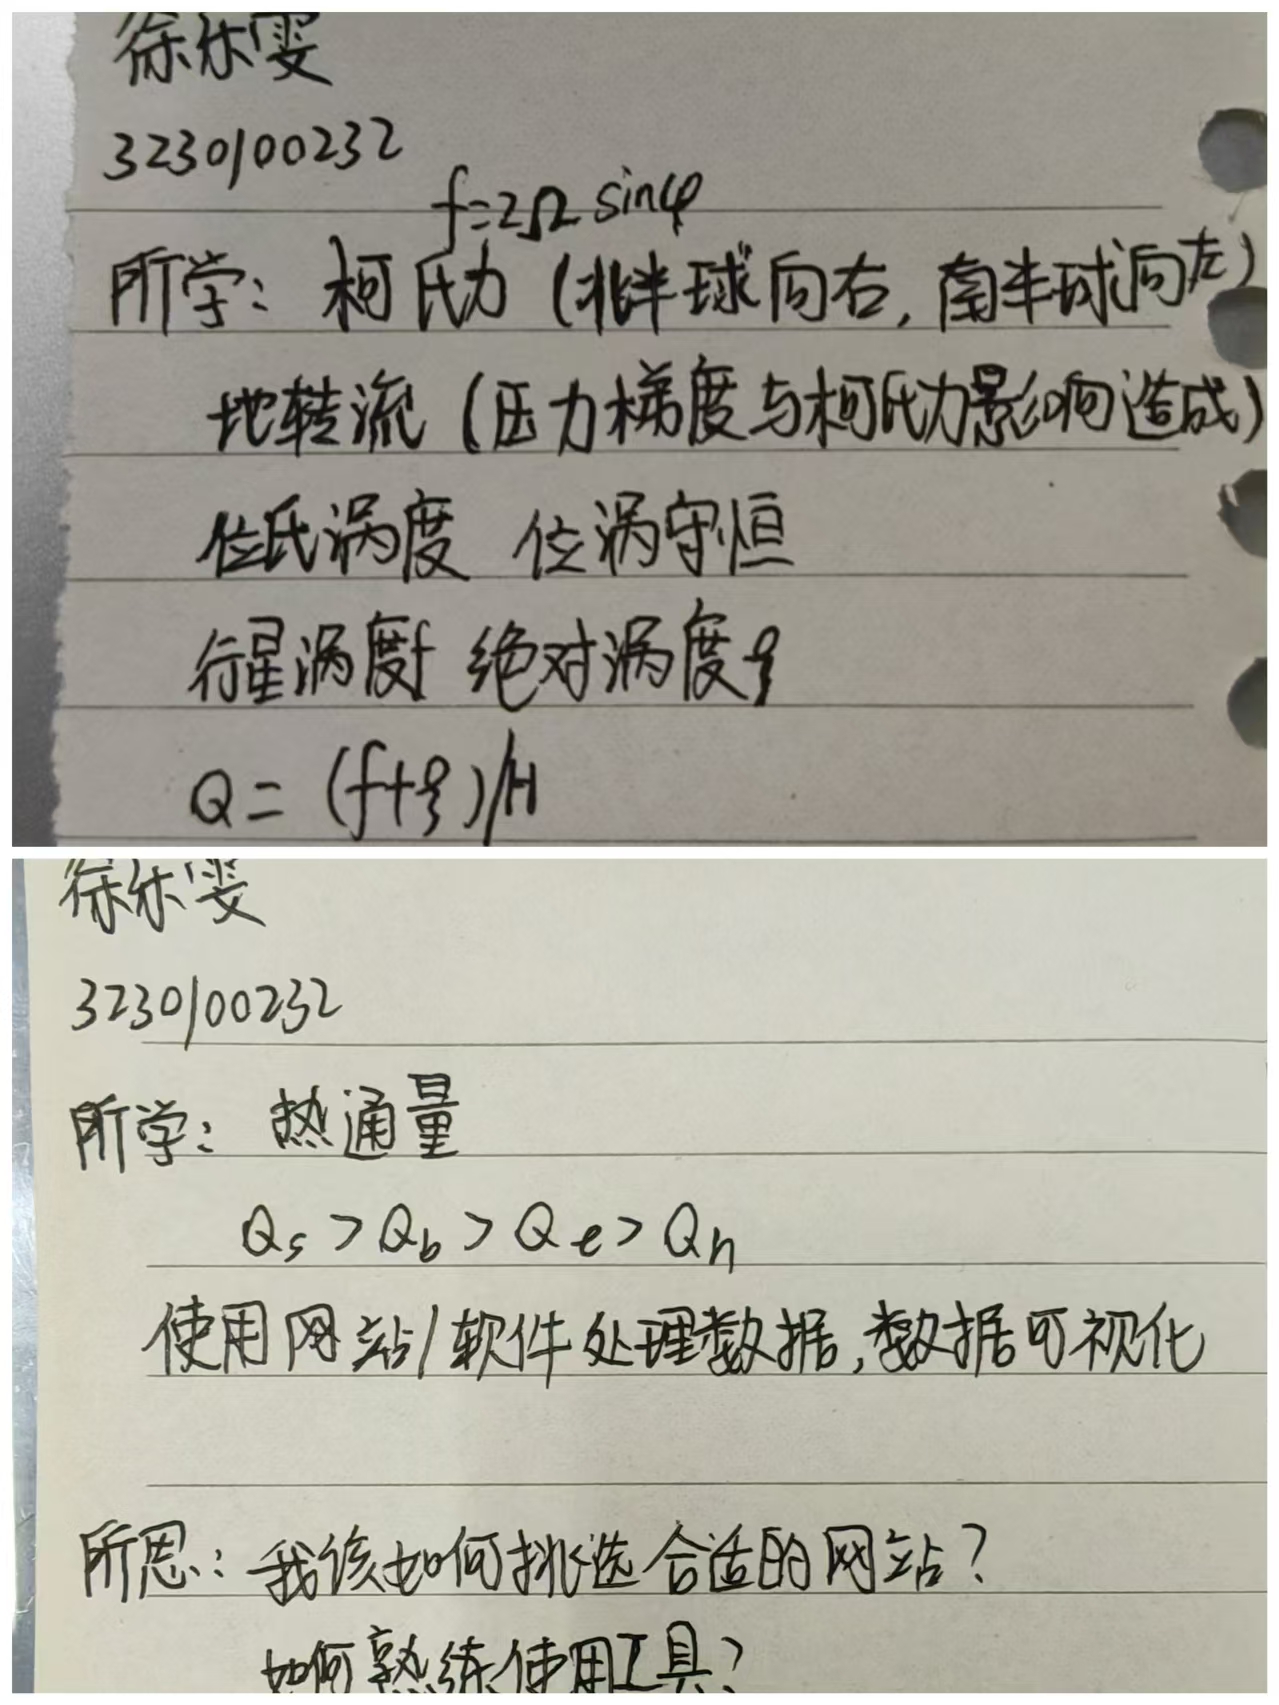 徐乐雯
3230100232
f=2Ω sinφ
所学：柯氏力（北半球向右，南半球向左）
地转流（压力梯度与柯氏力影响造成）
位氏涡度 位涡守恒
行星涡度f 绝对涡度ξ
Q = (f+ξ)/H
徐乐雯
3230100232
所学：热通量
Qs > Qb > Qe > Qh
使用网站/软件处理数据，数据可视化
所思：我该如何挑选合适的网站？
如何熟练使用工具？